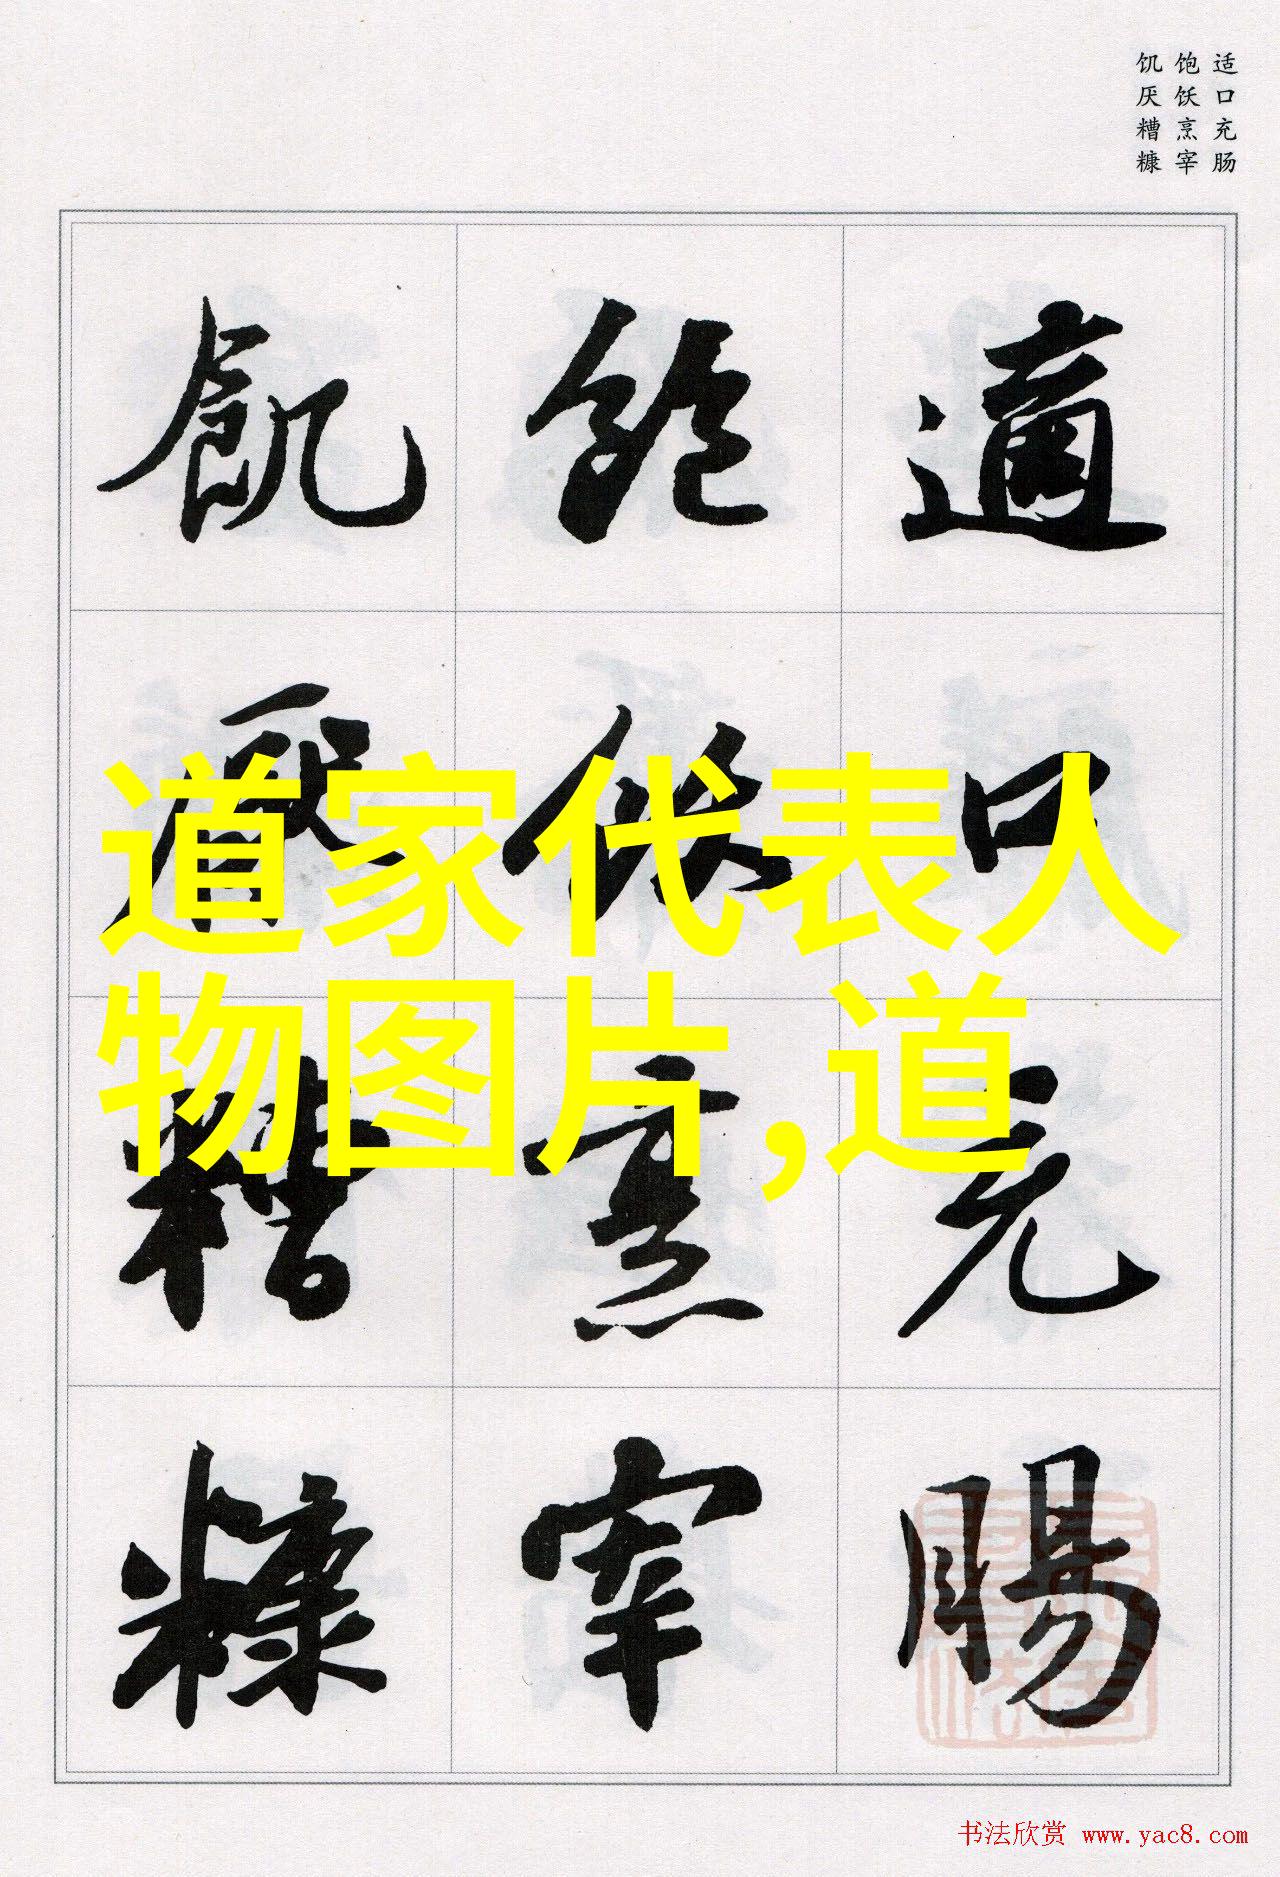 适口充肠
饱饫烹宰
饥厌糟糠
適口充腸
飽飫烹宰
飢厭糟糠
道家代表人
物图片,道
书法欣赏 www.yac8.com